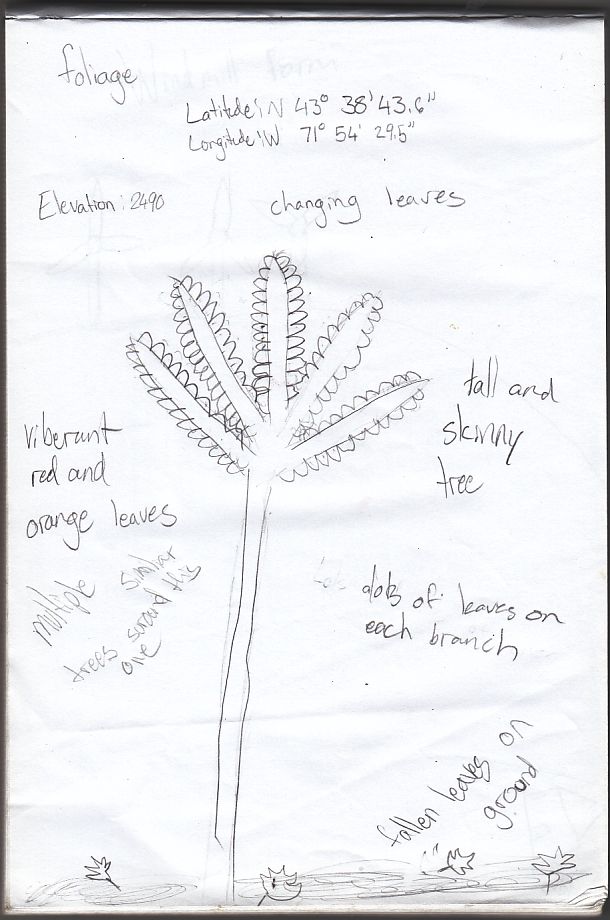 foliage
Latitude\N 43° 38' 43.6"
Longitude\W 71° 54' 29.5"
Elevation: 2490
changing leaves
tall and
skinny
tree
viberant
red and
orange leaves
multiple
similar
trees suround this
one
of leaves on
each branch
fallen leaves on
ground